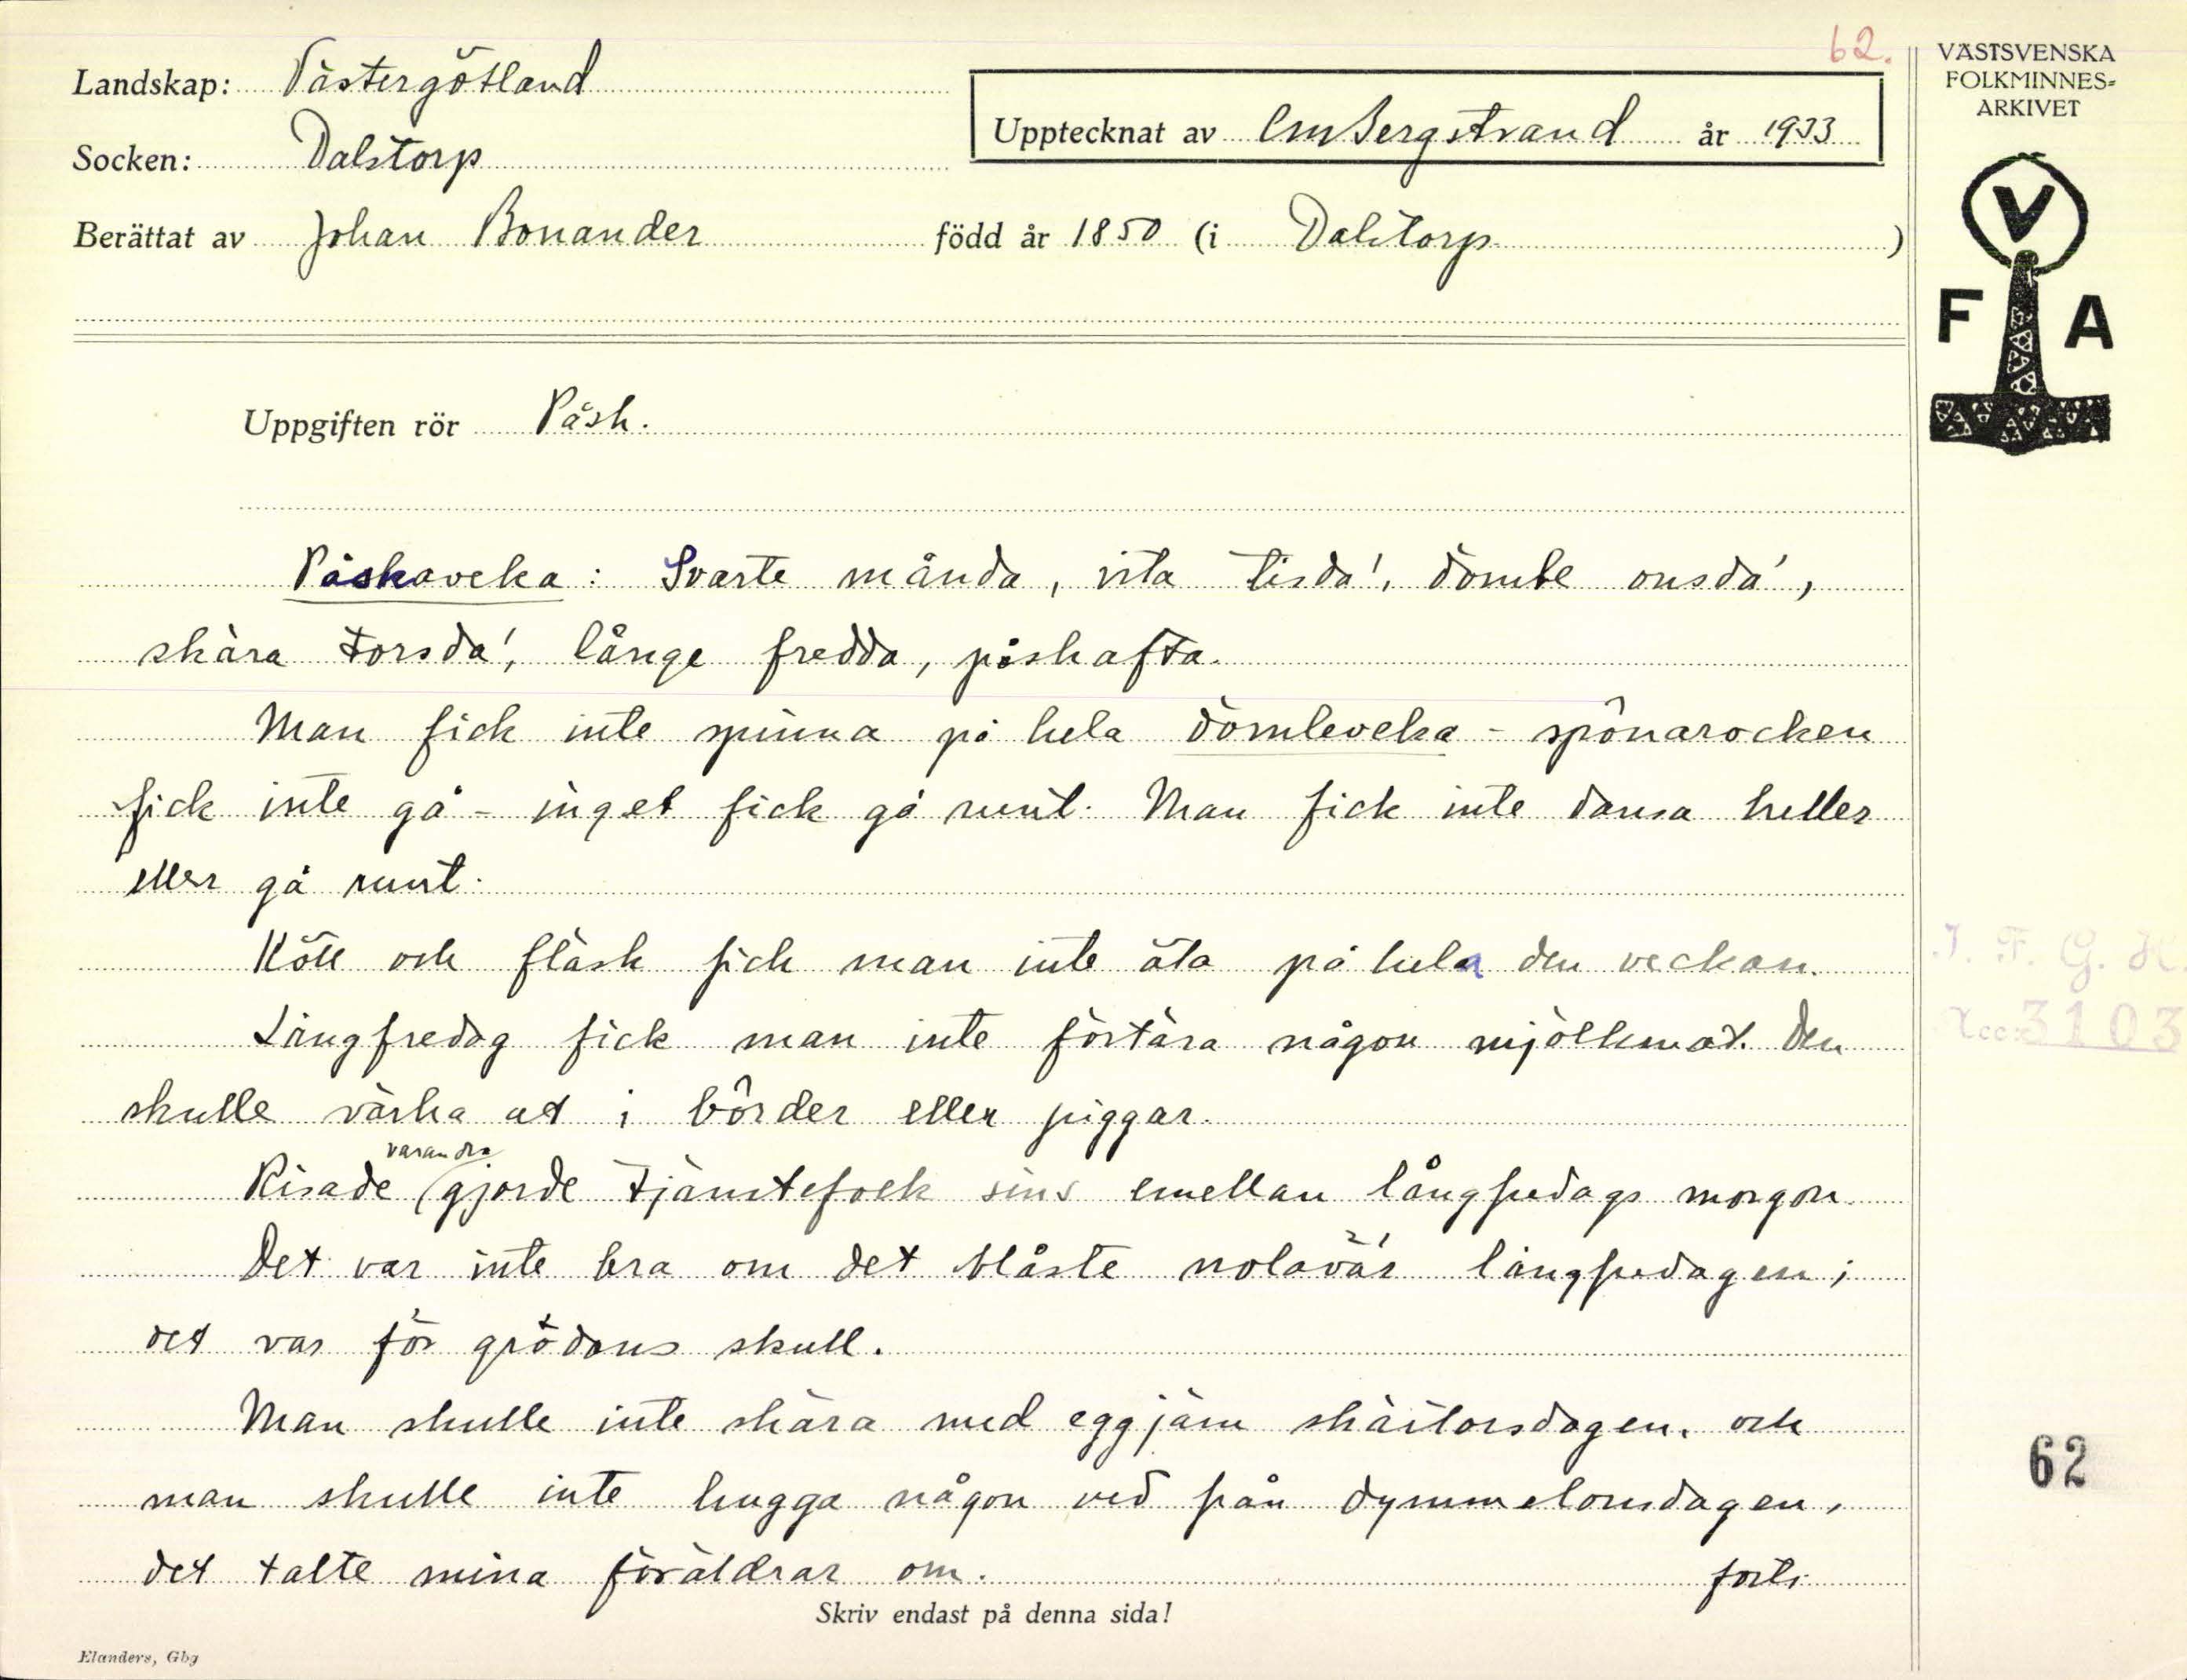 62.
Landskap: Västergötland
VÄSTSVENSKA
FOLKMINNES-
ARKIVET
Upptecknat av CM Bergstrand år 1933
Socken: Dalstorp
Berättat av Johan Bonander född år 1850 (i Dalstorp)
V
F A
Uppgiften rör Påsk.
Påskaveka: Svarte månda, vita tisda', dömle onsda',
skära torsda', långe fredda, påskafta.
Man fick inte spinna på hela dömleveka - spônarocken
fick inte gå - inget fick gå runt. Man fick inte dansa heller
eller gå runt.
Kött och fläsk fick man inte äta på hela den veckan.
Långfredag fick man inte förtära någon mjölkmat. Den
skulle värka ut i bôrder eller piggar.
Risade varandra gjorde tjänstefolk sins emellan långfredags morgon.
Det var inte bra om det blåste nolavär långfredagen;
det var för grödans skull.
Man skulle inte skära med eggjärn skärtorsdagen. och
man skulle inte hugga någon ved från dymmelonsdagen,
det talte mina föräldrar om. forts.
Skriv endast på denna sida!
Elanders, Gbg
I. F. G. H.
Acc: 3103
62